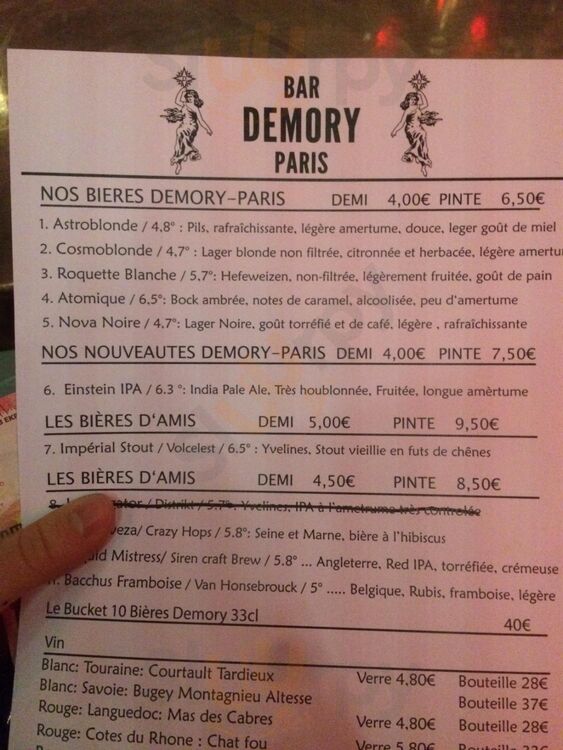 BAR
DEMORY
PARIS
NOS BIERES DEMORY-PARIS DEMI 4,00€ PINTE 6,50€
1. Astroblonde / 4,8° : Pils, rafraîchissante, légère amertume, douce, leger goût de miel
2. Cosmoblonde / 4,7° : Lager blonde non filtrée, citronnée et herbacée, légère amertu
3. Roquette Blanche / 5,7°: Hefeweizen, non-filtrée, légèrement fruitée, goût de pain
4. Atomique / 6,5°: Bock ambrée, notes de caramel, alcoolisée, peu d'amertume
5. Nova Noire / 4,7°: Lager Noire, goût torréfié et de café, légère , rafraîchissante
NOS NOUVEAUTES DEMORY-PARIS DEMI 4,00€ PINTE 7,50€
6. Einstein IPA / 6.3 °: India Pale Ale, Très houblonnée, Fruitée, longue amèrtume
LES BIÈRES D'AMIS DEMI 5,00€ PINTE 9,50€
7. Impérial Stout / Volcelest / 6.5° : Yvelines, Stout vieillie en futs de chênes
LES BIÈRES D'AMIS DEMI 4,50€ PINTE 8,50€
8. / Distrikt / 5.7°: Yvelines, IPA à l'ametrume très controlée
eza/ Crazy Hops / 5.8°: Seine et Marne, bière à l'hibiscus
uid Mistress/ Siren craft Brew / 5.8° ... Angleterre, Red IPA, torréfiée, crémeuse
11. Bacchus Framboise / Van Honsebrouck / 5° ..... Belgique, Rubis, framboise, légère
Le Bucket 10 Bières Demory 33cl 40€
Vin
Blanc: Touraine: Courtault Tardieux Verre 4,80€ Bouteille 28€
Blanc: Savoie: Bugey Montagnieu Altesse Bouteille 37€
Rouge: Languedoc: Mas des Cabres Verre 4,80€ Bouteille 28€
Rouge: Cotes du Rhone : Chat fou Verre 5,80€ Bouteille 33€